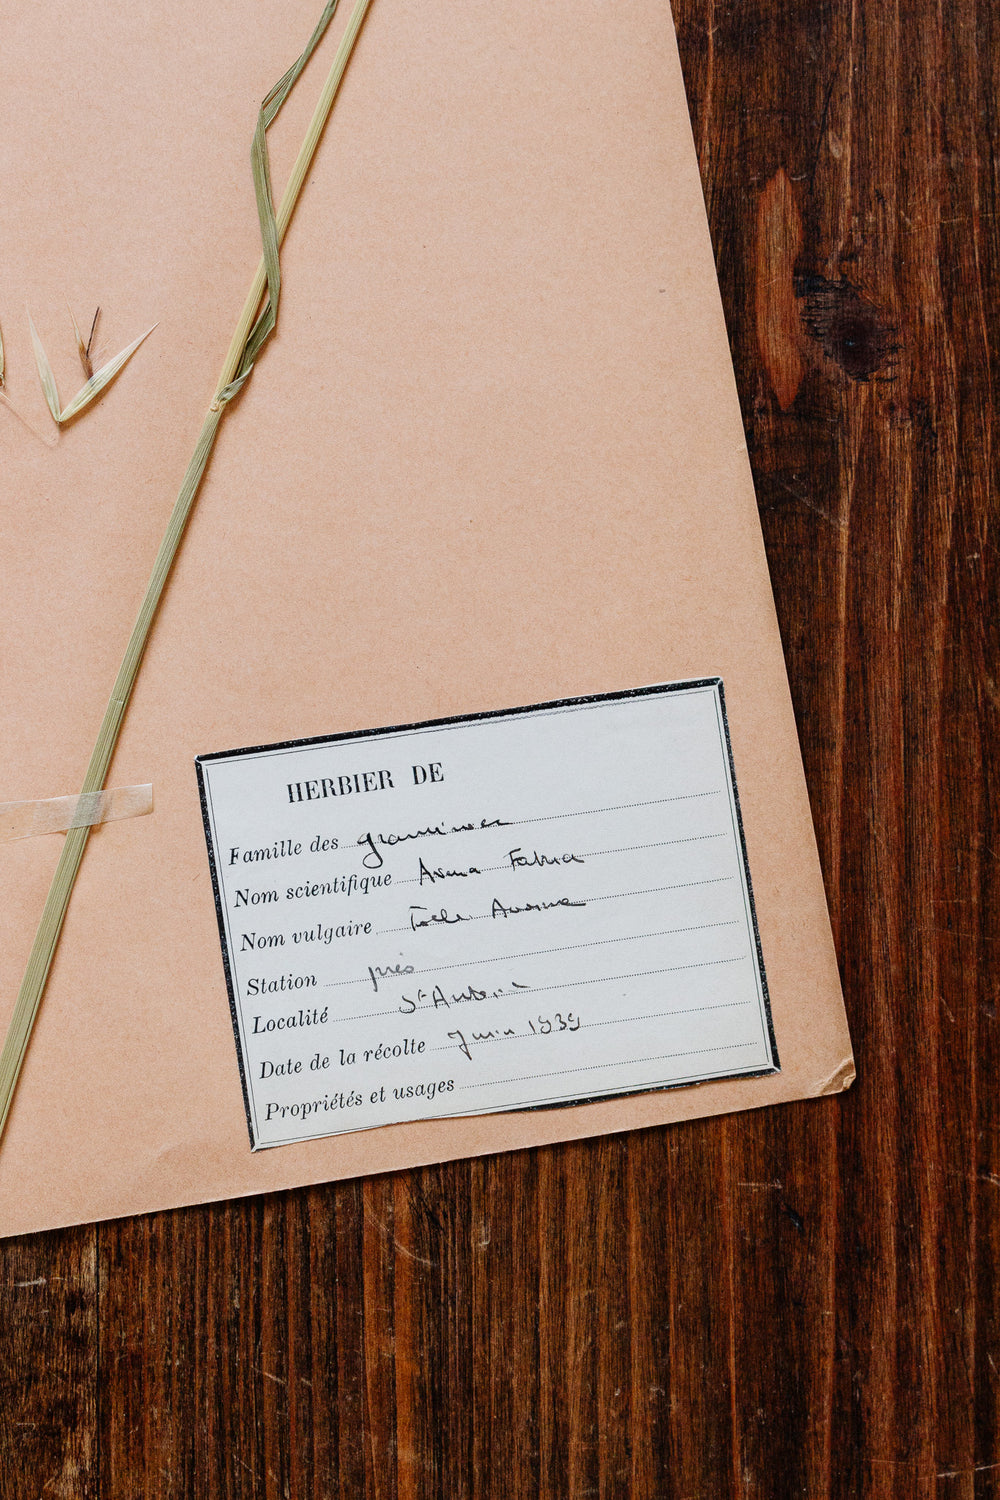 HERBIER DE
Famille des graminées
Nom scientifique Avena Fatua
Nom vulgaire Folle Avoine
Station prés
Localité St
Date de la récolte Juin 1939
Propriétés et usages